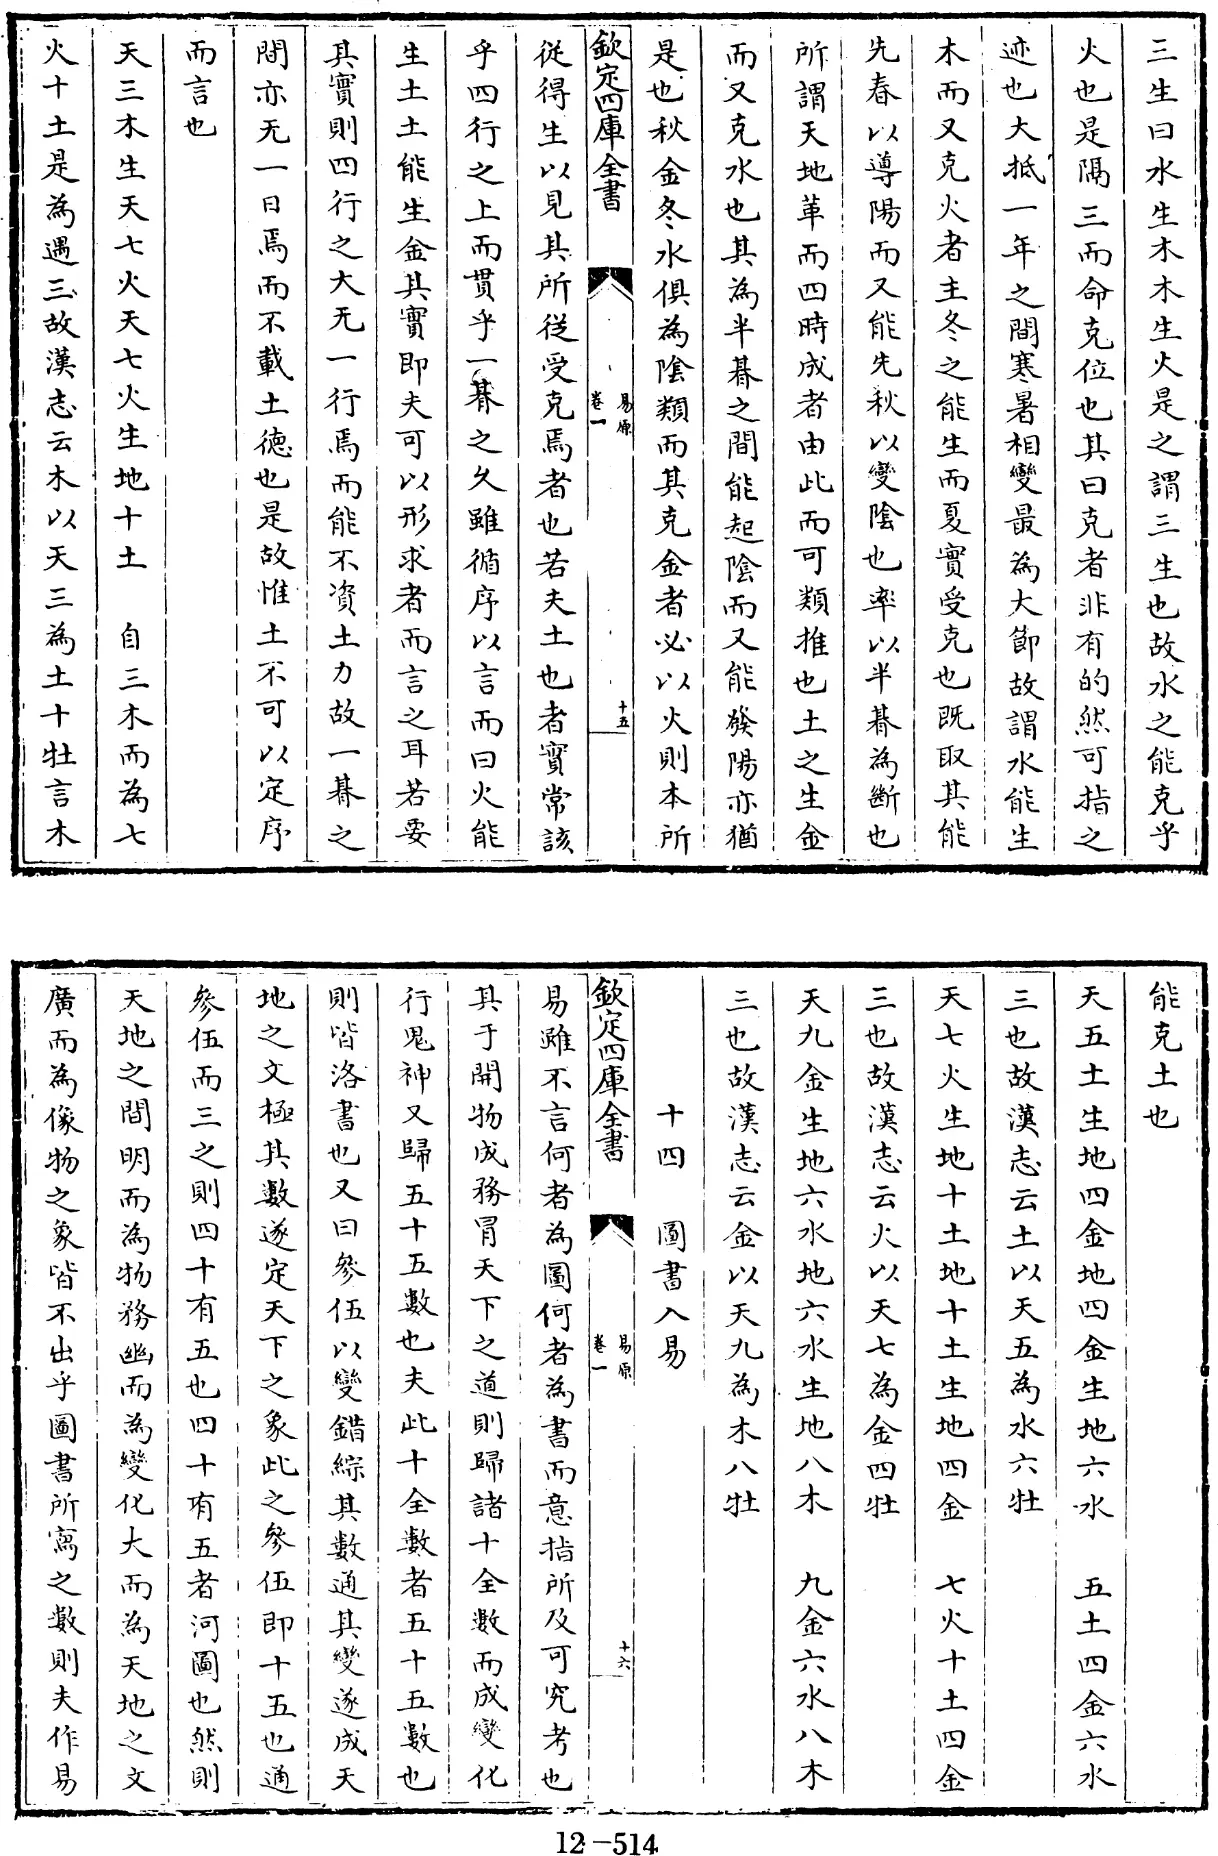 三生曰水生木木生火是之謂三生也故水之能克乎
火也是隔三而命克位也其曰克者非有的然可指之
迹也大抵一年之間寒暑相變最為大節故謂水能生
木而又克火者主冬之能生而夏實受克也既取其能
先春以導陽而又能先秋以變陰也率以半朞為斷也
所謂天地革而四時成者由此而可類推也土之生金
而又克水也其為半朞之間能起陰而又能發陽亦猶
是也秋金冬水俱為陰類而其克金者必以火則本所
欽定四庫全書
易原
卷一
十五
從得生以見其所從受克焉者也若夫土也者實常該
乎四行之上而貫乎一朞之久雖循序以言而曰火能
生土土能生金其實即夫可以形求者而言之耳若要
其實則四行之大无一行焉而能不資土力故一朞之
間亦无一日焉而不載土德也是故惟土不可以定序
而言也
天三木生天七火天七火生地十土 自三木而為七
火十土是為遇三故漢志云木以天三為土十牡言木
能克土也
天五土生地四金地四金生地六水 五土四金六水
三也故漢志云土以天五為水六牡
天七火生地十土地十土生地四金 七火十土四金
三也故漢志云火以天七為金四牡
天九金生地六水地六水生地八木 九金六水八木
三也故漢志云金以天九為木八牡
十四 圖書入易
欽定四庫全書
易原
卷一
十六
易雖不言何者為圖何者為書而意指所及可究考也
其于開物成務冐天下之道則歸諸十全數而成變化
行鬼神又歸五十五數也夫此十全數者五十五數也
則皆洛書也又曰參伍以變錯綜其數通其變遂成天
地之文極其數遂定天下之象此之參伍即十五也通
參伍而三之則四十有五也四十有五者河圖也然則
天地之間明而為物務幽而為變化大而為天地之文
廣而為像物之象皆不出乎圖書所寫之數則夫作易
12-514